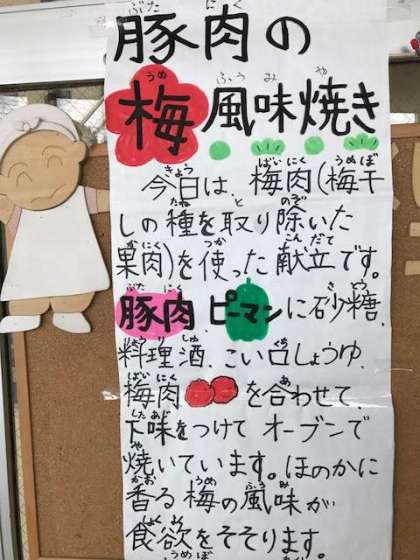 豚肉の
梅風味焼き
今日は、梅肉(梅干
しの種を取り除いた
果肉)を使った献立です。
豚肉、ピーマンに砂糖、
料理酒、こい口しょうゆ、
梅肉を合わせて、
下味をつけてオーブンで
焼いています。ほのかに
香る梅の風味が
食欲をそそります